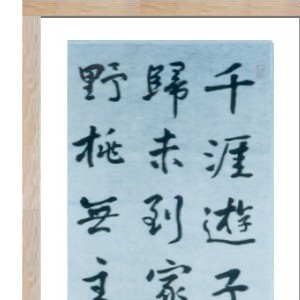 千涯遊子
歸未到家
野桃無主